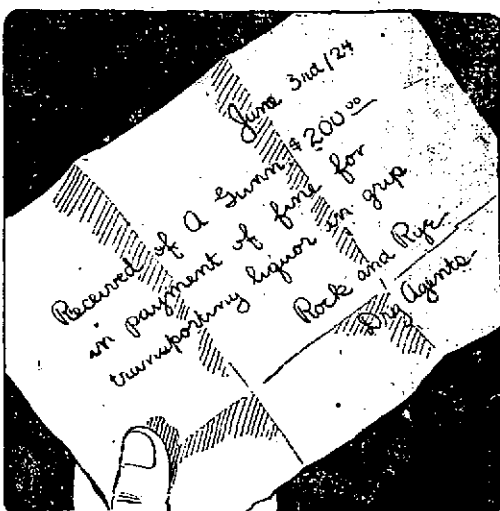 June 3rd/24
Received of A Gunn $200.00
in payment of fine for
transporting liquor in grip
Rock and Rye
Dry Agents